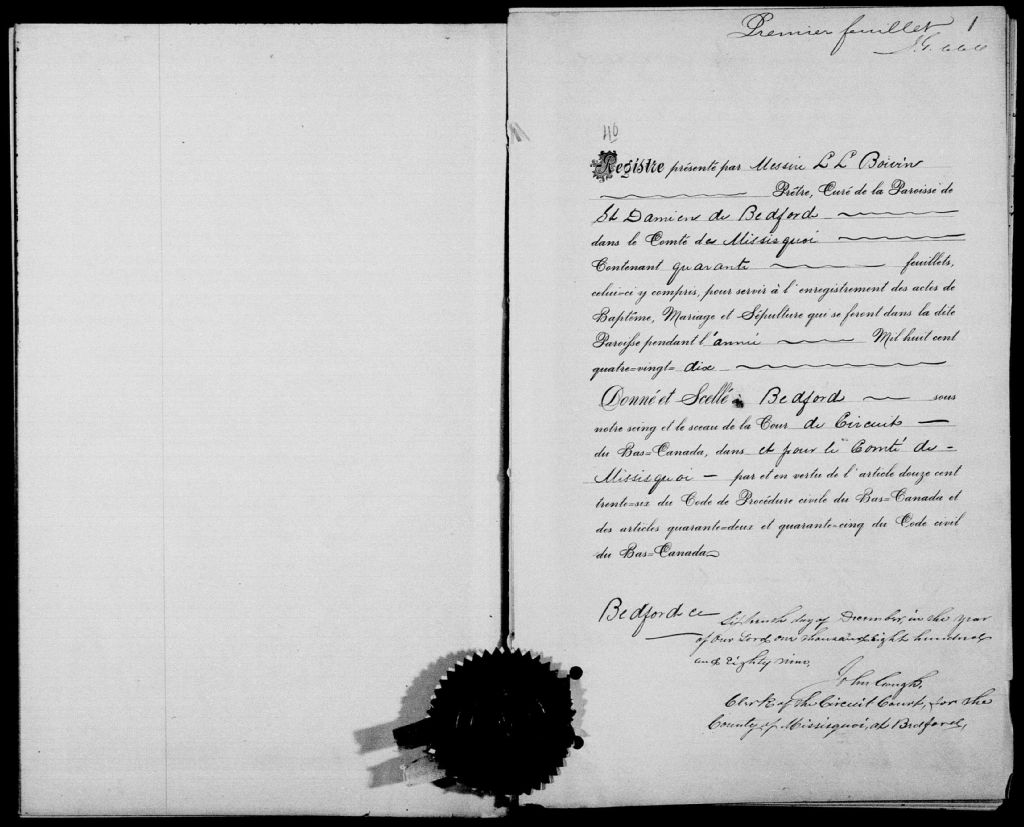 Premier feuillet 1
40
Registre présenté par Messire L L Boivin
Prêtre, Curé de la Paroisse de
St Damien de Bedford
dans le Comté de Missisquoi
Contenant quarante feuillets,
celui-ci y compris, pour servir à l'enregistrement des actes de
Baptême, Mariage et Sépulture qui se feront dans la dite
Paroisse pendant l'année Mil huit cent
quatre=vingt= dix
Donné et Scellé à Bedford sous
notre seing et le sceau de la Cour de Circuit
du Bas=Canada, dans et pour le Comté de -
Missisquoi - par et en vertu de l'article douze cent
trente=six du Code de Procédure civile du Bas=Canada et
des articles quarante=deux et quarante=cinq du Code civil
du Bas=Canada
Bedford ce day of December, in the year
of Our Lord one thousand eight hundred
and Eighty nine.
John
Clerk of the Circuit Court, for the
County of Missisquoi, at Bedford,